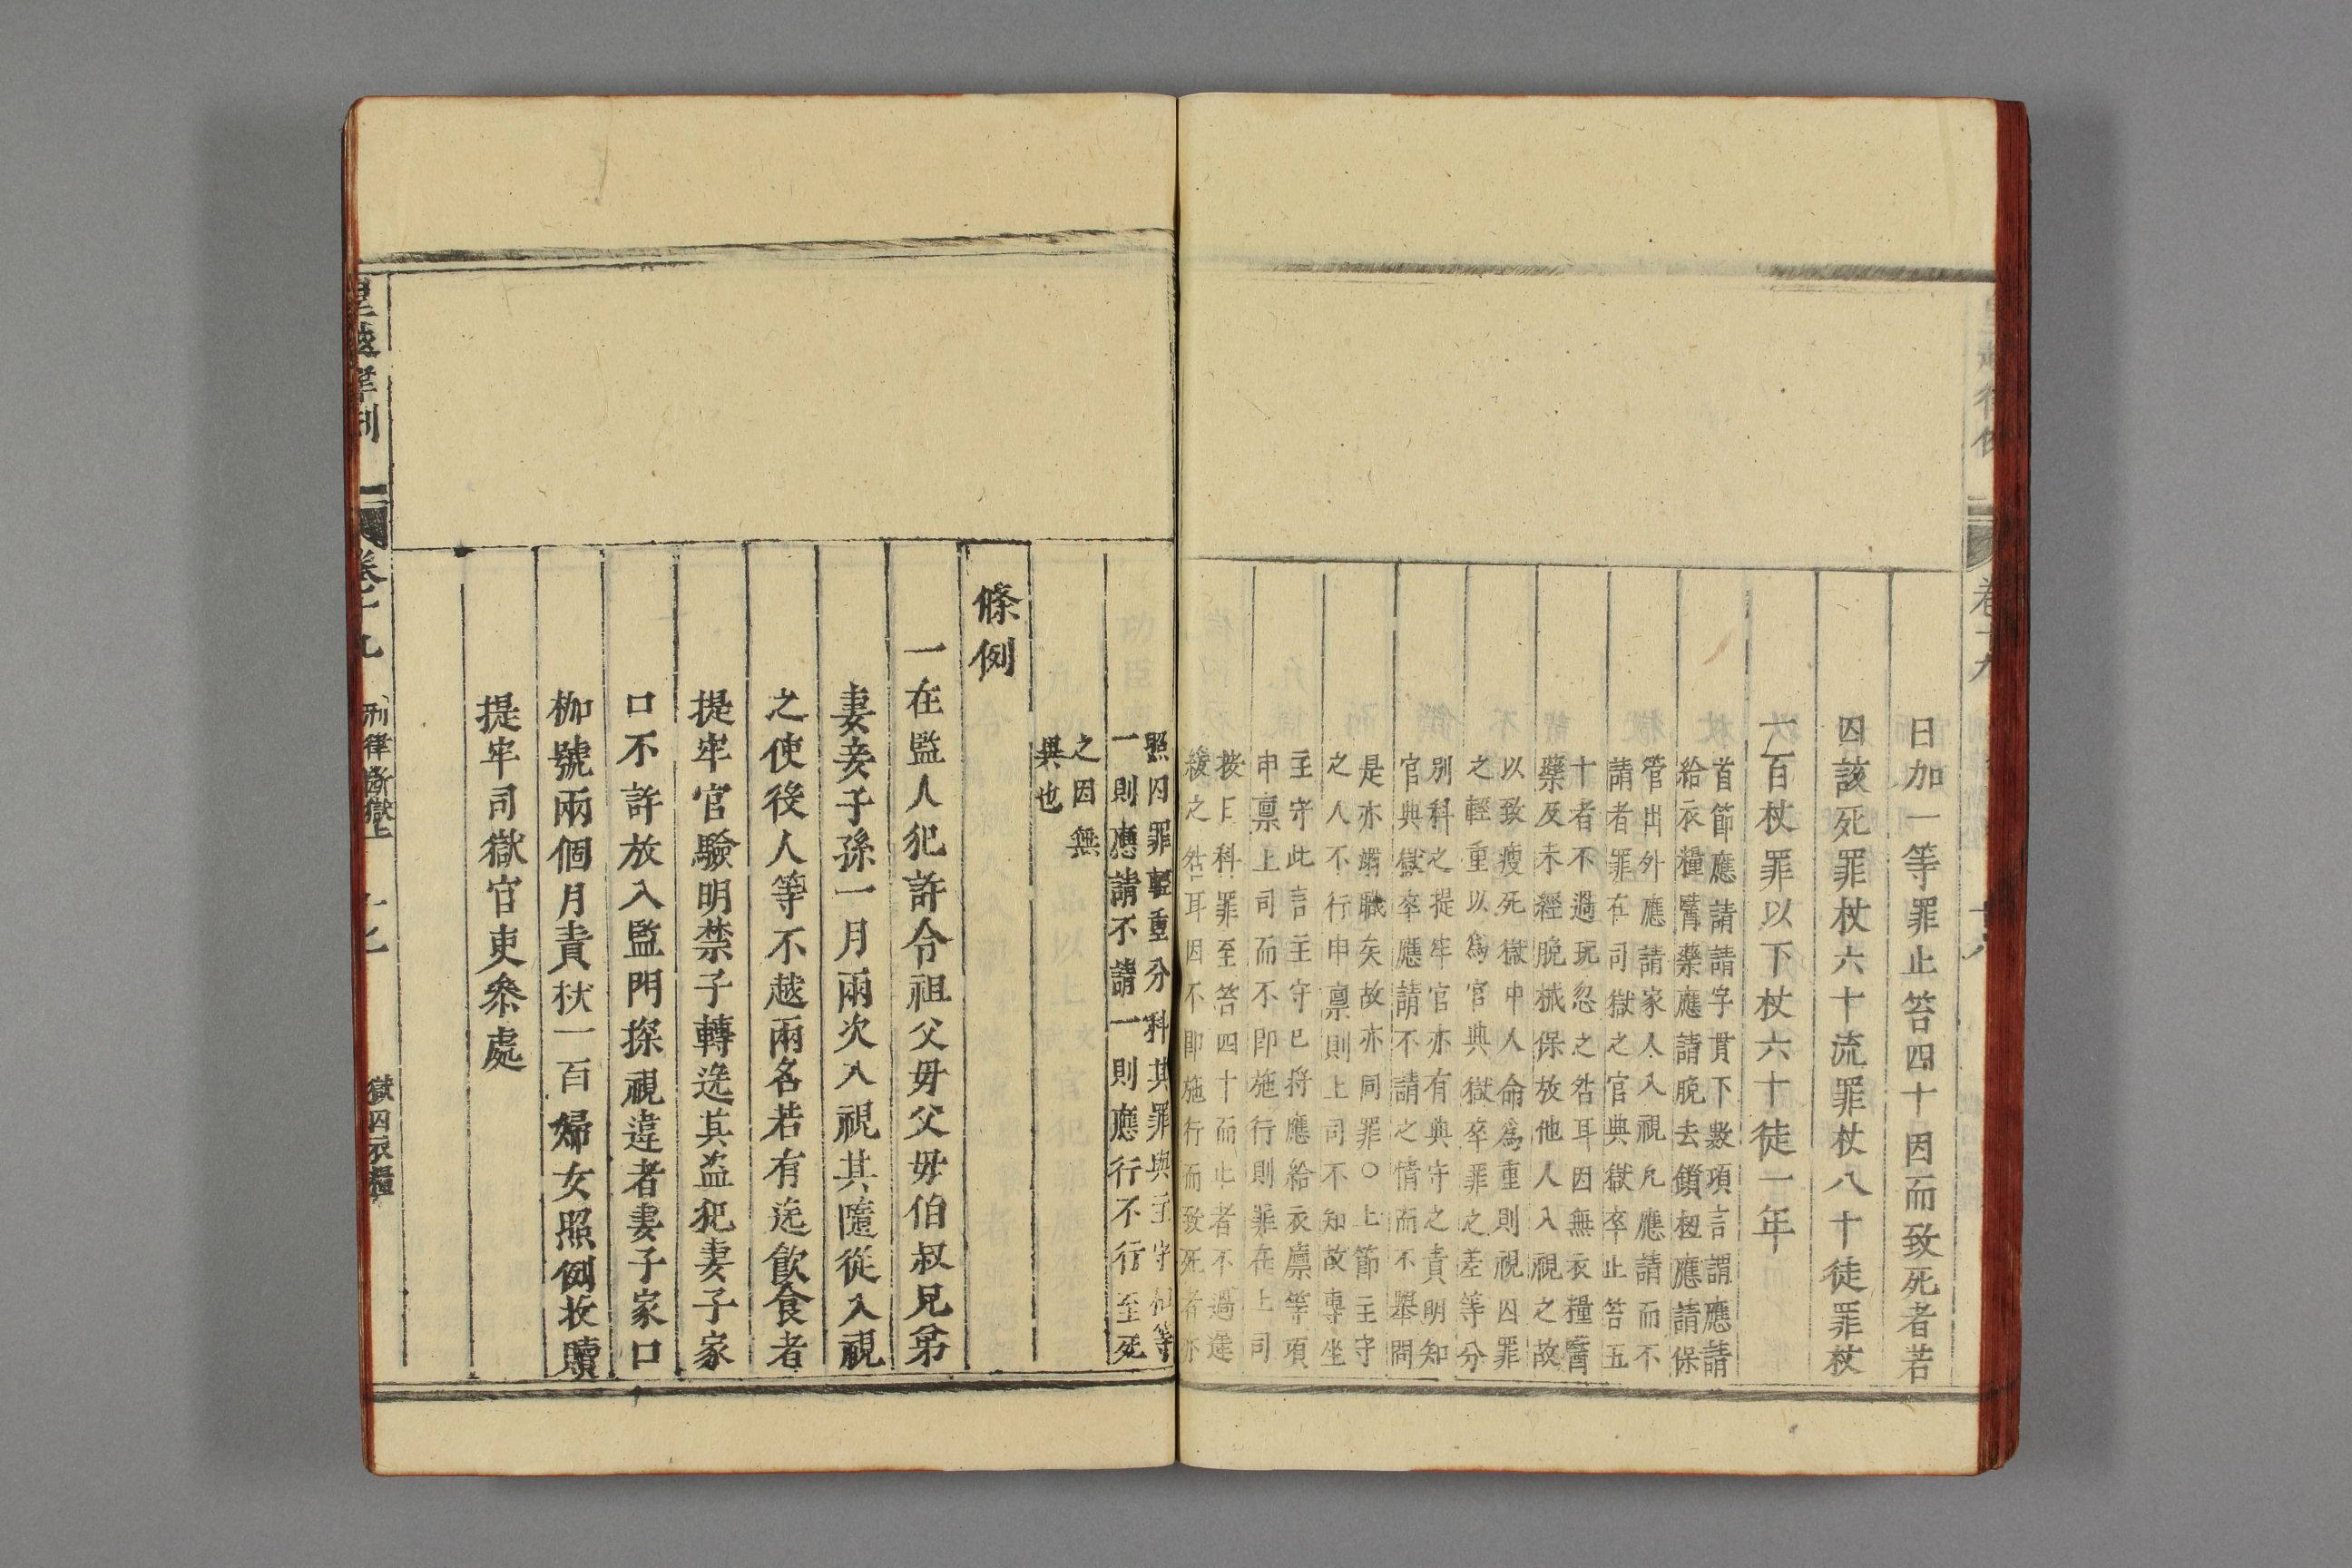 日加一等罪止笞四十因而致死者若
囚該死罪杖六十流罪杖八十徒罪杖
一百杖罪以下杖六十徒一年
首節應請請字貫下數項言謂應請
給衣糧醫藥應請脫去鎖杻應請保
管出外應請家人入視凢應請而不
請者罪在司獄之官典獄卒止笞五
十者不過玩忽之咎耳因無衣糧醫
藥及未經脫械保放他人入視之故
以致瘦死獄中人命爲重則視囚罪
之輕重以爲官典獄卒罪之差等分
別科之提牢官亦有典守之責明知
官典獄卒應請不請之情而不舉問
是亦溺職矣故亦同罪○上節主守
之人不行申禀則上司不知故專坐
主守此言主守已將應給衣廪等項
申禀上司而不即施行則罪在上司
按日科罪至笞四十而止者不過遲
緩之咎耳因不即施行而致死者亦
照囚罪輕重分科其罪與主守相等
一則應請不請一則應行不行至死
之因無
異也
條例
一在監人犯許令祖父毋父毋伯叔兄弟
妻妾子孫一月兩次入視其隨從入視
之使役人等不越兩名若有送飲食者
提牢官驗明禁子轉送其盗犯妻子家
口不許放入監門探視違者妻子家口
枷號兩個月責杖一百婦女照例收贖
提牢司獄官吏叅處
卷十九
刑律斷獄上
獄囚衣糧